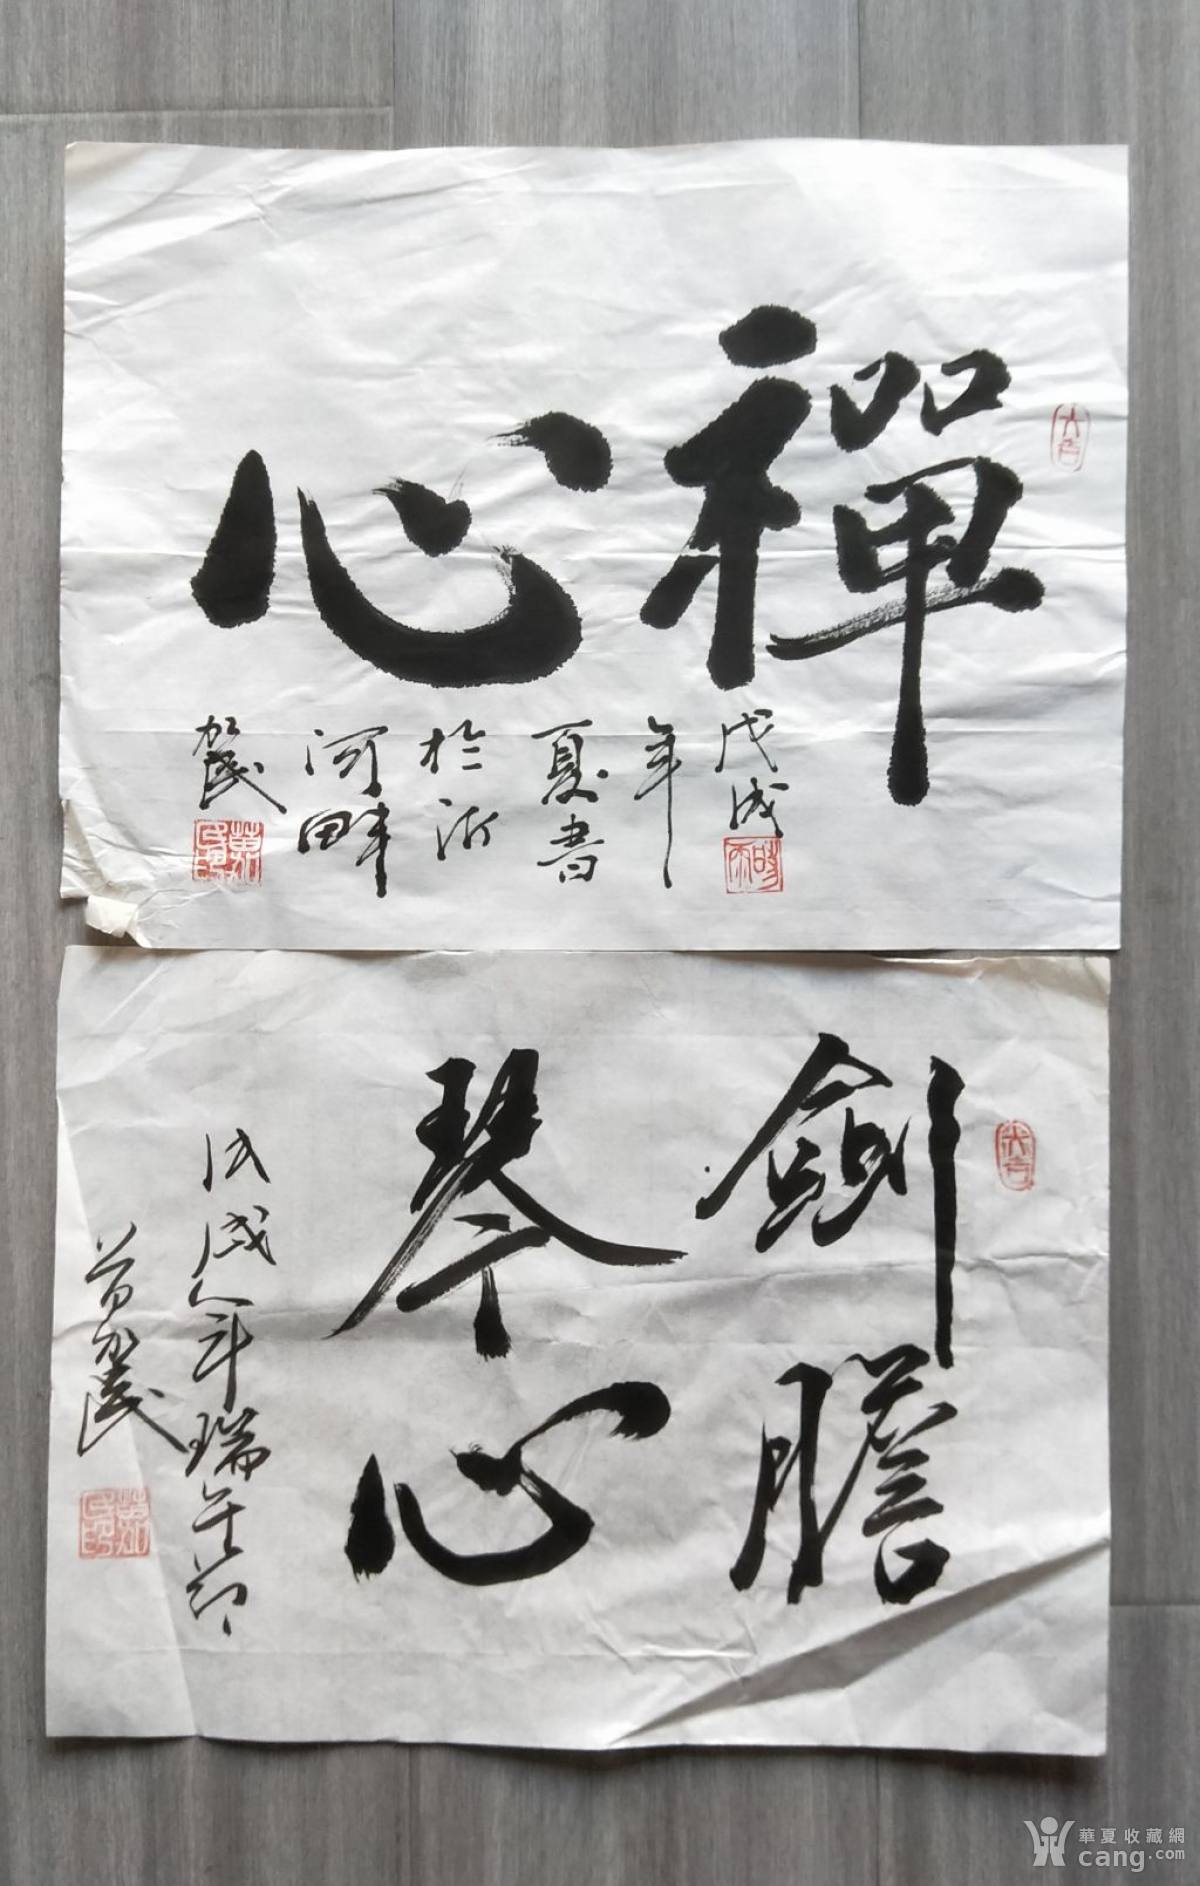 禪心
戊戌
年
夏書
於沂
河畔
大吉
劍膽
琴心
戊戌年瑞午節
大吉
華夏收藏網
cang.com